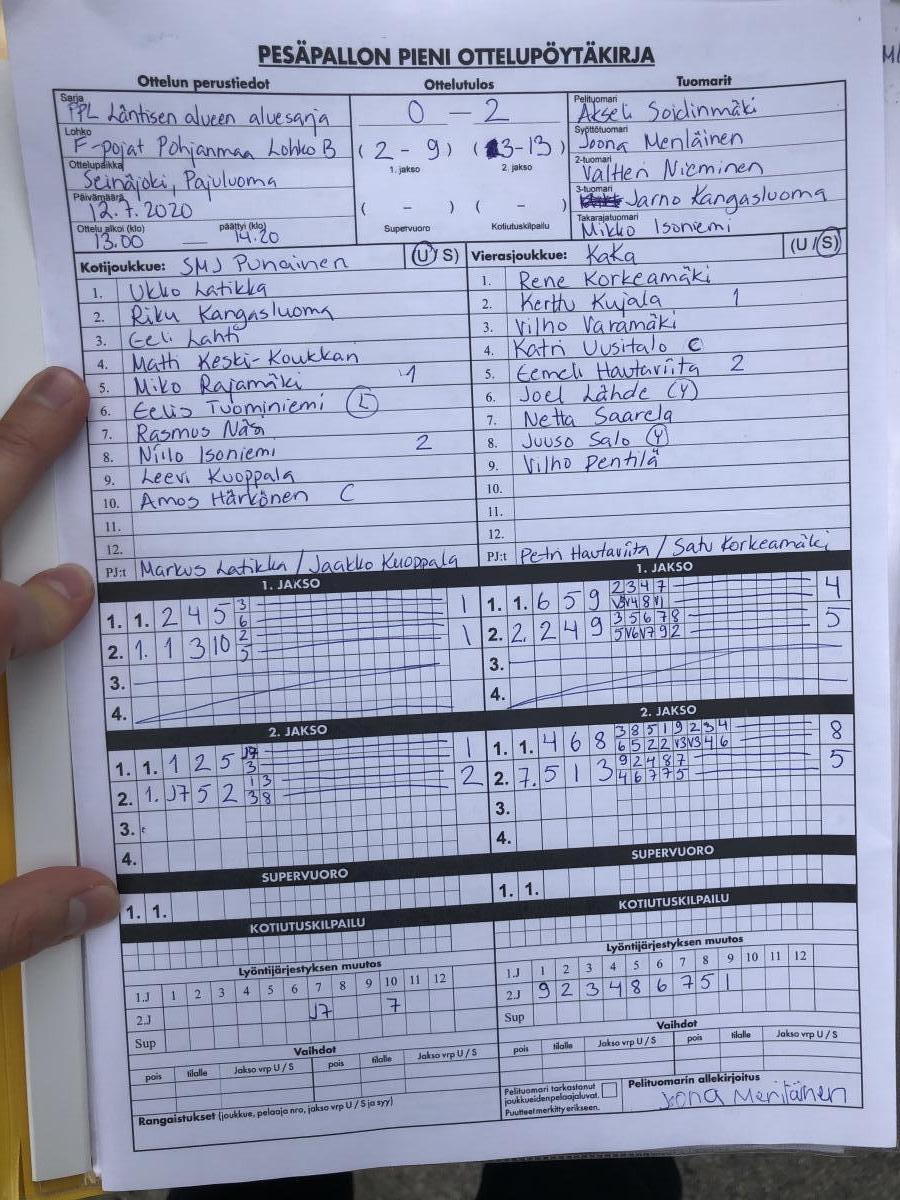 PESÄPALLON PIENI OTTELUPÖYTÄKIRJA
Ottelun perustiedot
Sarja
PPL Läntisen alueen aluesarja
Lohko
F-pojat Pohjanmaa Lohko B
Ottelupaikka
Seinäjoki, Pajuluoma
Päivämäärä
12.7.2020
Ottelu alkoi (klo) päättyi (klo)
13.00 — 14.20
Ottelutulos
0 — 2
(2 - 9) (3-13)
1. jakso 2. jakso
( - ) ( - )
Supervuoro Kotiutuskilpailu
Tuomarit
Pelituomari
Akseli Soidinmäki
Syöttötuomari
Joona Meriläinen
2-tuomari
Valtteri Nieminen
3-tuomari
Jarno Kangasluoma
Takarajatuomari
Mikko Isoniemi
Kotijoukkue: SMJ Punainen (U/S)
1. Ukko Latikka
2. Riku Kangasluoma
3. Eeli Lahti
4. Matti Keski-Koukkari
5. Miko Rajamäki 1
6. Eelis Tuominiemi L
7. Rasmus Näsi
8. Niilo Isoniemi 2
9. Leevi Kuoppala
10. Amos Härkönen C
11.
12.
PJ:t Markus Latikka / Jaakko Kuoppala
Vierasjoukkue: Kaka (U/S)
1. Rene Korkeamäki
2. Kerttu Kujala 1
3. Vilho Varamäki
4. Katri Uusitalo C
5. Eemeli Hautaviita 2
6. Joel Lähde (Y)
7. Netta Saarela
8. Juuso Salo (Y)
9. Vilho Penttilä
10.
11.
12.
PJ:t Petri Hautaviita / Satu Korkeamäki
1. JAKSO
1. 1. 2 4 5 3 1
6
2. 1. 1 3 10 2 1
5
3.
4.
1. JAKSO
1. 1. 6 5 9 2 3 4 7 4
V3 V4 8 V1
2. 2. 2 4 9 3 5 6 7 8 5
5 V6 V7 9 2
3.
4.
2. JAKSO
1. 1. 1 2 5 J7 1
3
2. 1. J7 5 2 1 3 2
3 8
3.
4.
2. JAKSO
1. 1. 4 6 8 3 8 5 1 9 2 3 4 8
6 5 2 2 V3 V3 4 6
2. 7. 5 1 3 9 2 4 8 7 5
4 6 7 7 5
3.
4.
SUPERVUORO
1. 1.
SUPERVUORO
1. 1.
KOTIUTUSKILPAILU
KOTIUTUSKILPAILU
Lyöntijärjestyksen muutos
1.J 1 2 3 4 5 6 7 8 9 10 11 12
2.J J7 7
Sup
Lyöntijärjestyksen muutos
1.J 1 2 3 4 5 6 7 8 9 10 11 12
2.J 9 2 3 4 8 6 7 5 1
Sup
Vaihdot
pois tilalle Jakso vrp U / S pois tilalle Jakso vrp U / S
Vaihdot
pois tilalle Jakso vrp U / S pois tilalle Jakso vrp U / S
Rangaistukset (joukkue, pelaaja nro, jakso vrp U / S ja syy)
Pelituomari tarkastanut
joukkueiden pelaajaluvat.
Puutteet merkitty erikseen.
Pelituomarin allekirjoitus
Joona Meriläinen